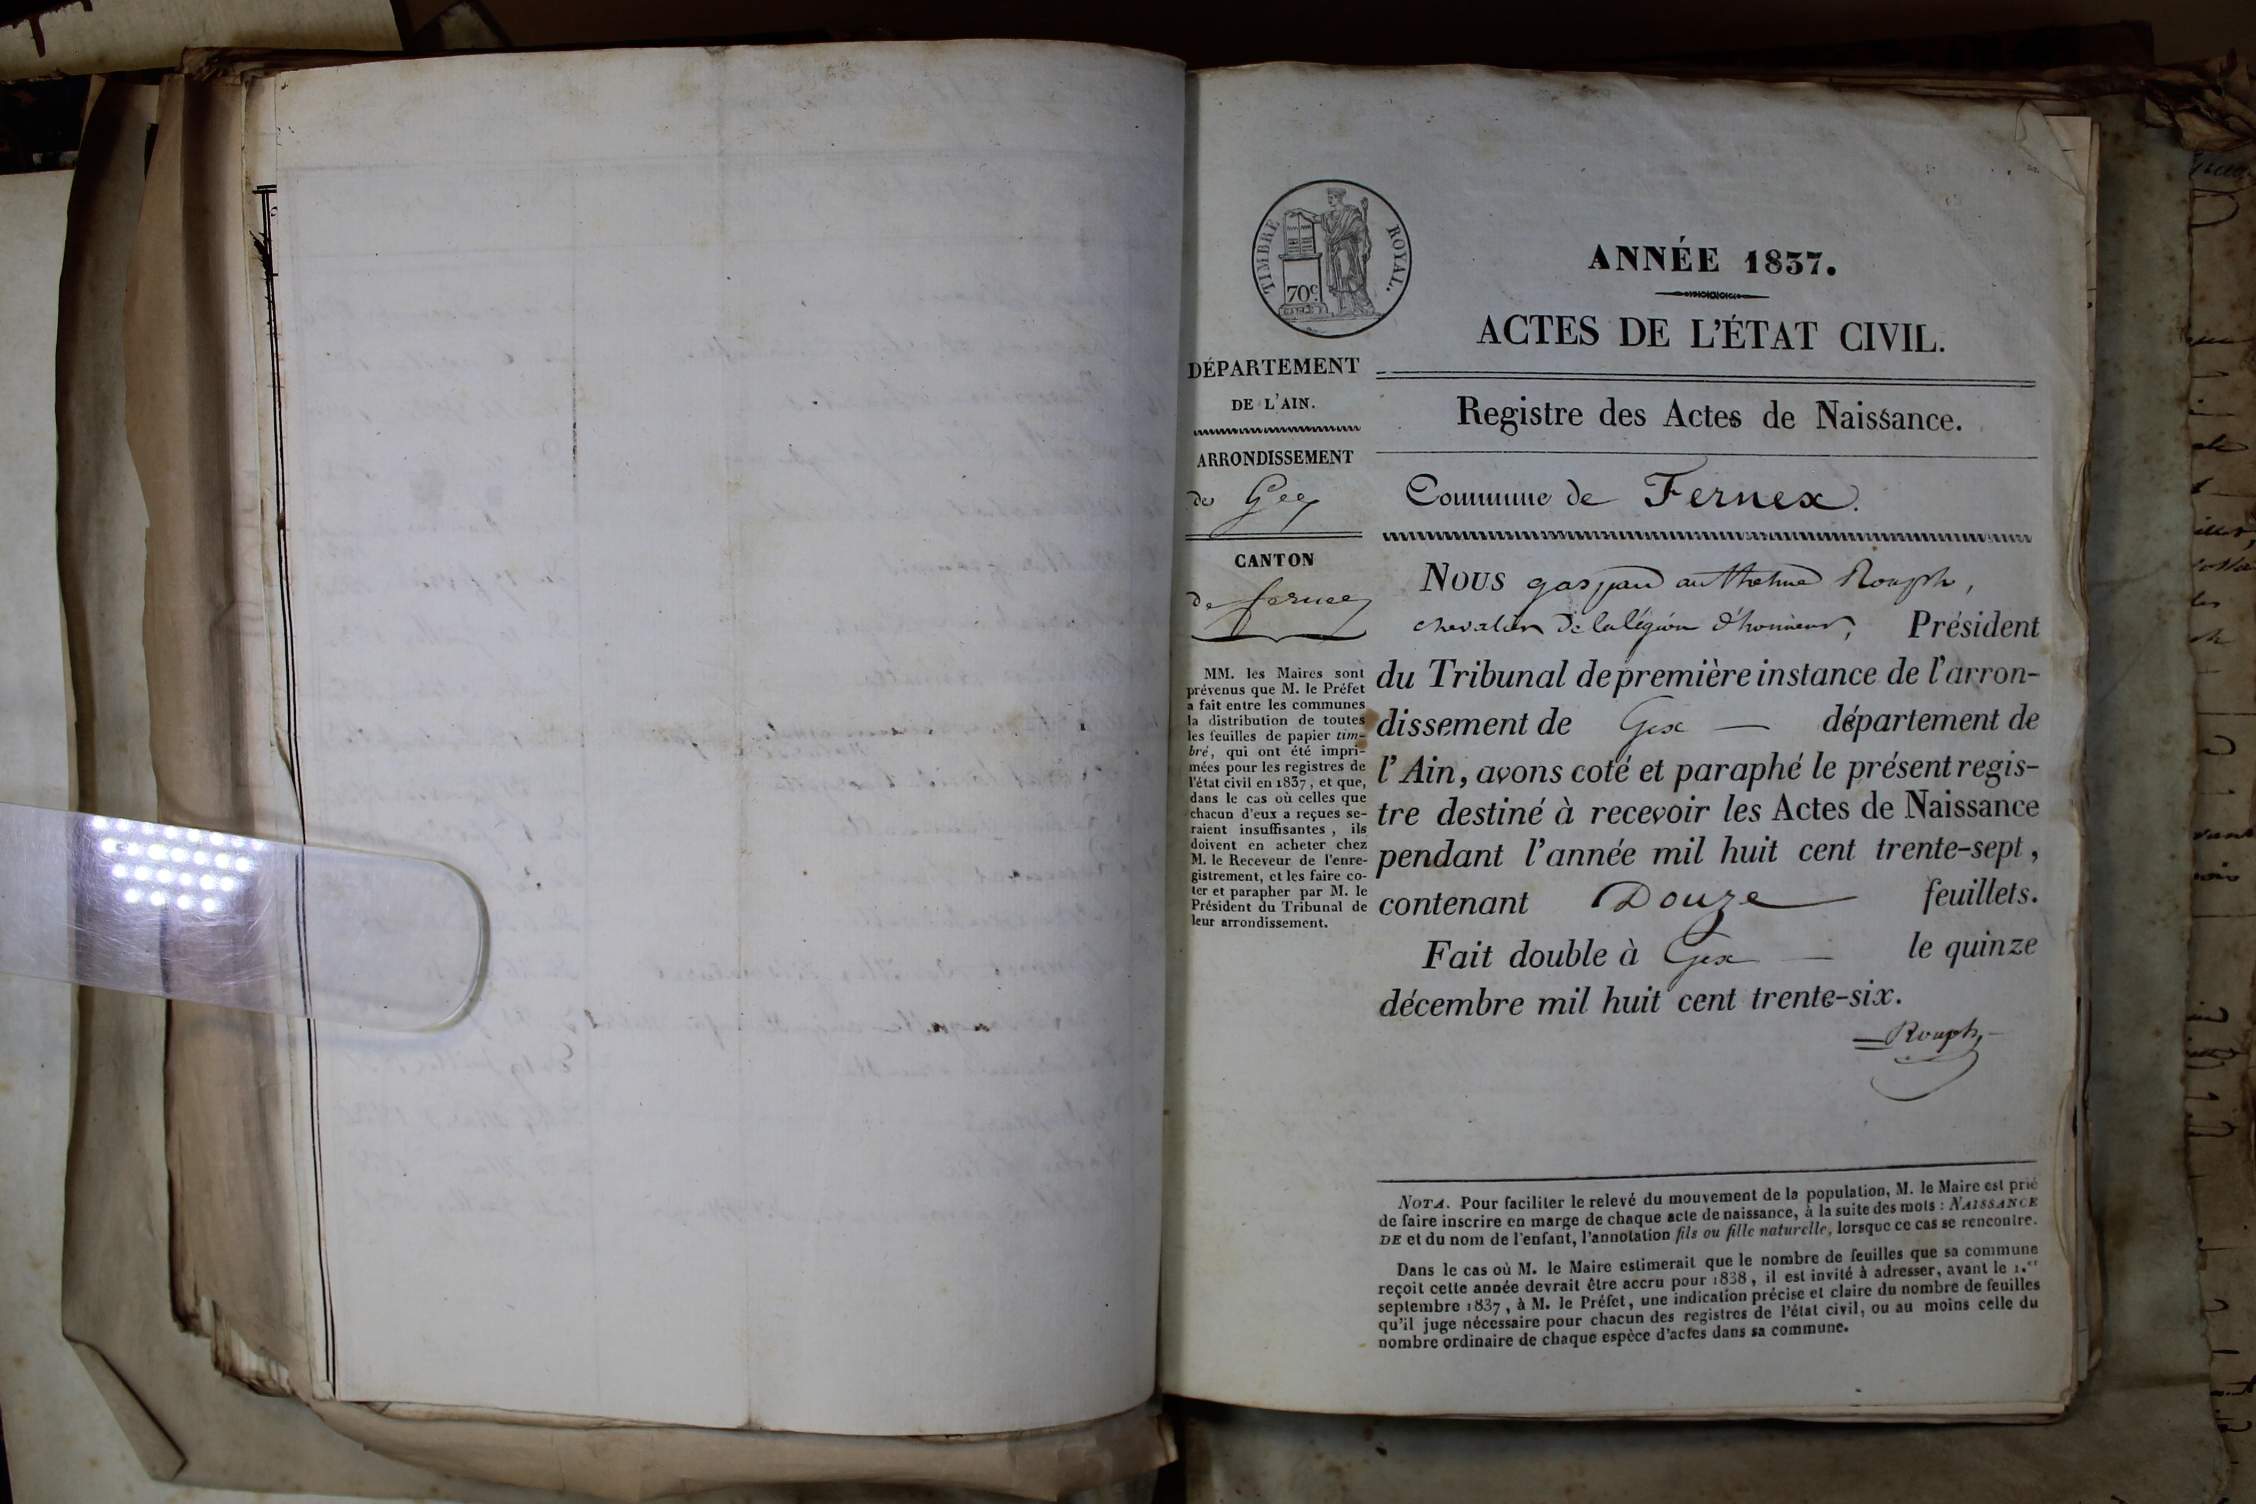 TIMBRE ROYAL.
70c.
ANNÉE 1837.
ACTES DE L'ÉTAT CIVIL.
DÉPARTEMENT
DE L'AIN.
ARRONDISSEMENT
de Gex
CANTON
de fernex
MM. les Maires sont
prévenus que M. le Préfet
a fait entre les communes
la distribution de toutes
les feuilles de papier tim-
bré, qui ont été impri-
mées pour les registres de
l'état civil en 1837, et que,
dans le cas où celles que
chacun d'eux a reçues se-
raient insuffisantes, ils
doivent en acheter chez
M. le Receveur de l'enre-
gistrement, et les faire co-
ter et parapher par M. le
Président du Tribunal de
leur arrondissement.
Registre des Actes de Naissance.
Commune de Fernex.
Nous gaspard anthelme Rouph,
chevalier de la légion d'honneur, Président
du Tribunal de première instance de l'arron-
dissement de Gex département de
l'Ain, avons coté et paraphé le présent regis-
tre destiné à recevoir les Actes de Naissance
pendant l'année mil huit cent trente-sept,
contenant Douze feuillets.
Fait double à Gex le quinze
décembre mil huit cent trente-six.
Rouph
NOTA. Pour faciliter le relevé du mouvement de la population, M. le Maire est prié
de faire inscrire en marge de chaque acte de naissance, à la suite des mots : NAISSANCE
DE et du nom de l'enfant, l'annotation fils ou fille naturelle, lorsque ce cas se rencontre.
Dans le cas où M. le Maire estimerait que le nombre de feuilles que sa commune
reçoit cette année devrait être accru pour 1838, il est invité à adresser, avant le 1.er
septembre 1837, à M. le Préfet, une indication précise et claire du nombre de feuilles
qu'il juge nécessaire pour chacun des registres de l'état civil, ou au moins celle du
nombre ordinaire de chaque espèce d'actes dans sa commune.